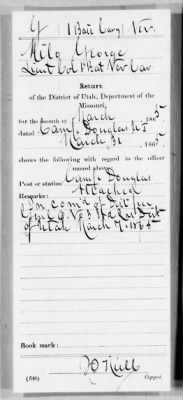 G | 1 Batt Cav'y | Nev.
Milo George
Lieut Col 1 Bat Nev Cav
Return
of the District of Utah, Department of the
Missouri,
for the month of March 1865
dated Camp Douglas
March 31 1865
shows the following with regard to the officer
named above:
Camp Douglas
Post or station
Attached
Remarks:
In com'd of
of Utah March 7. 1865
Book mark:
(546)
Copyist.